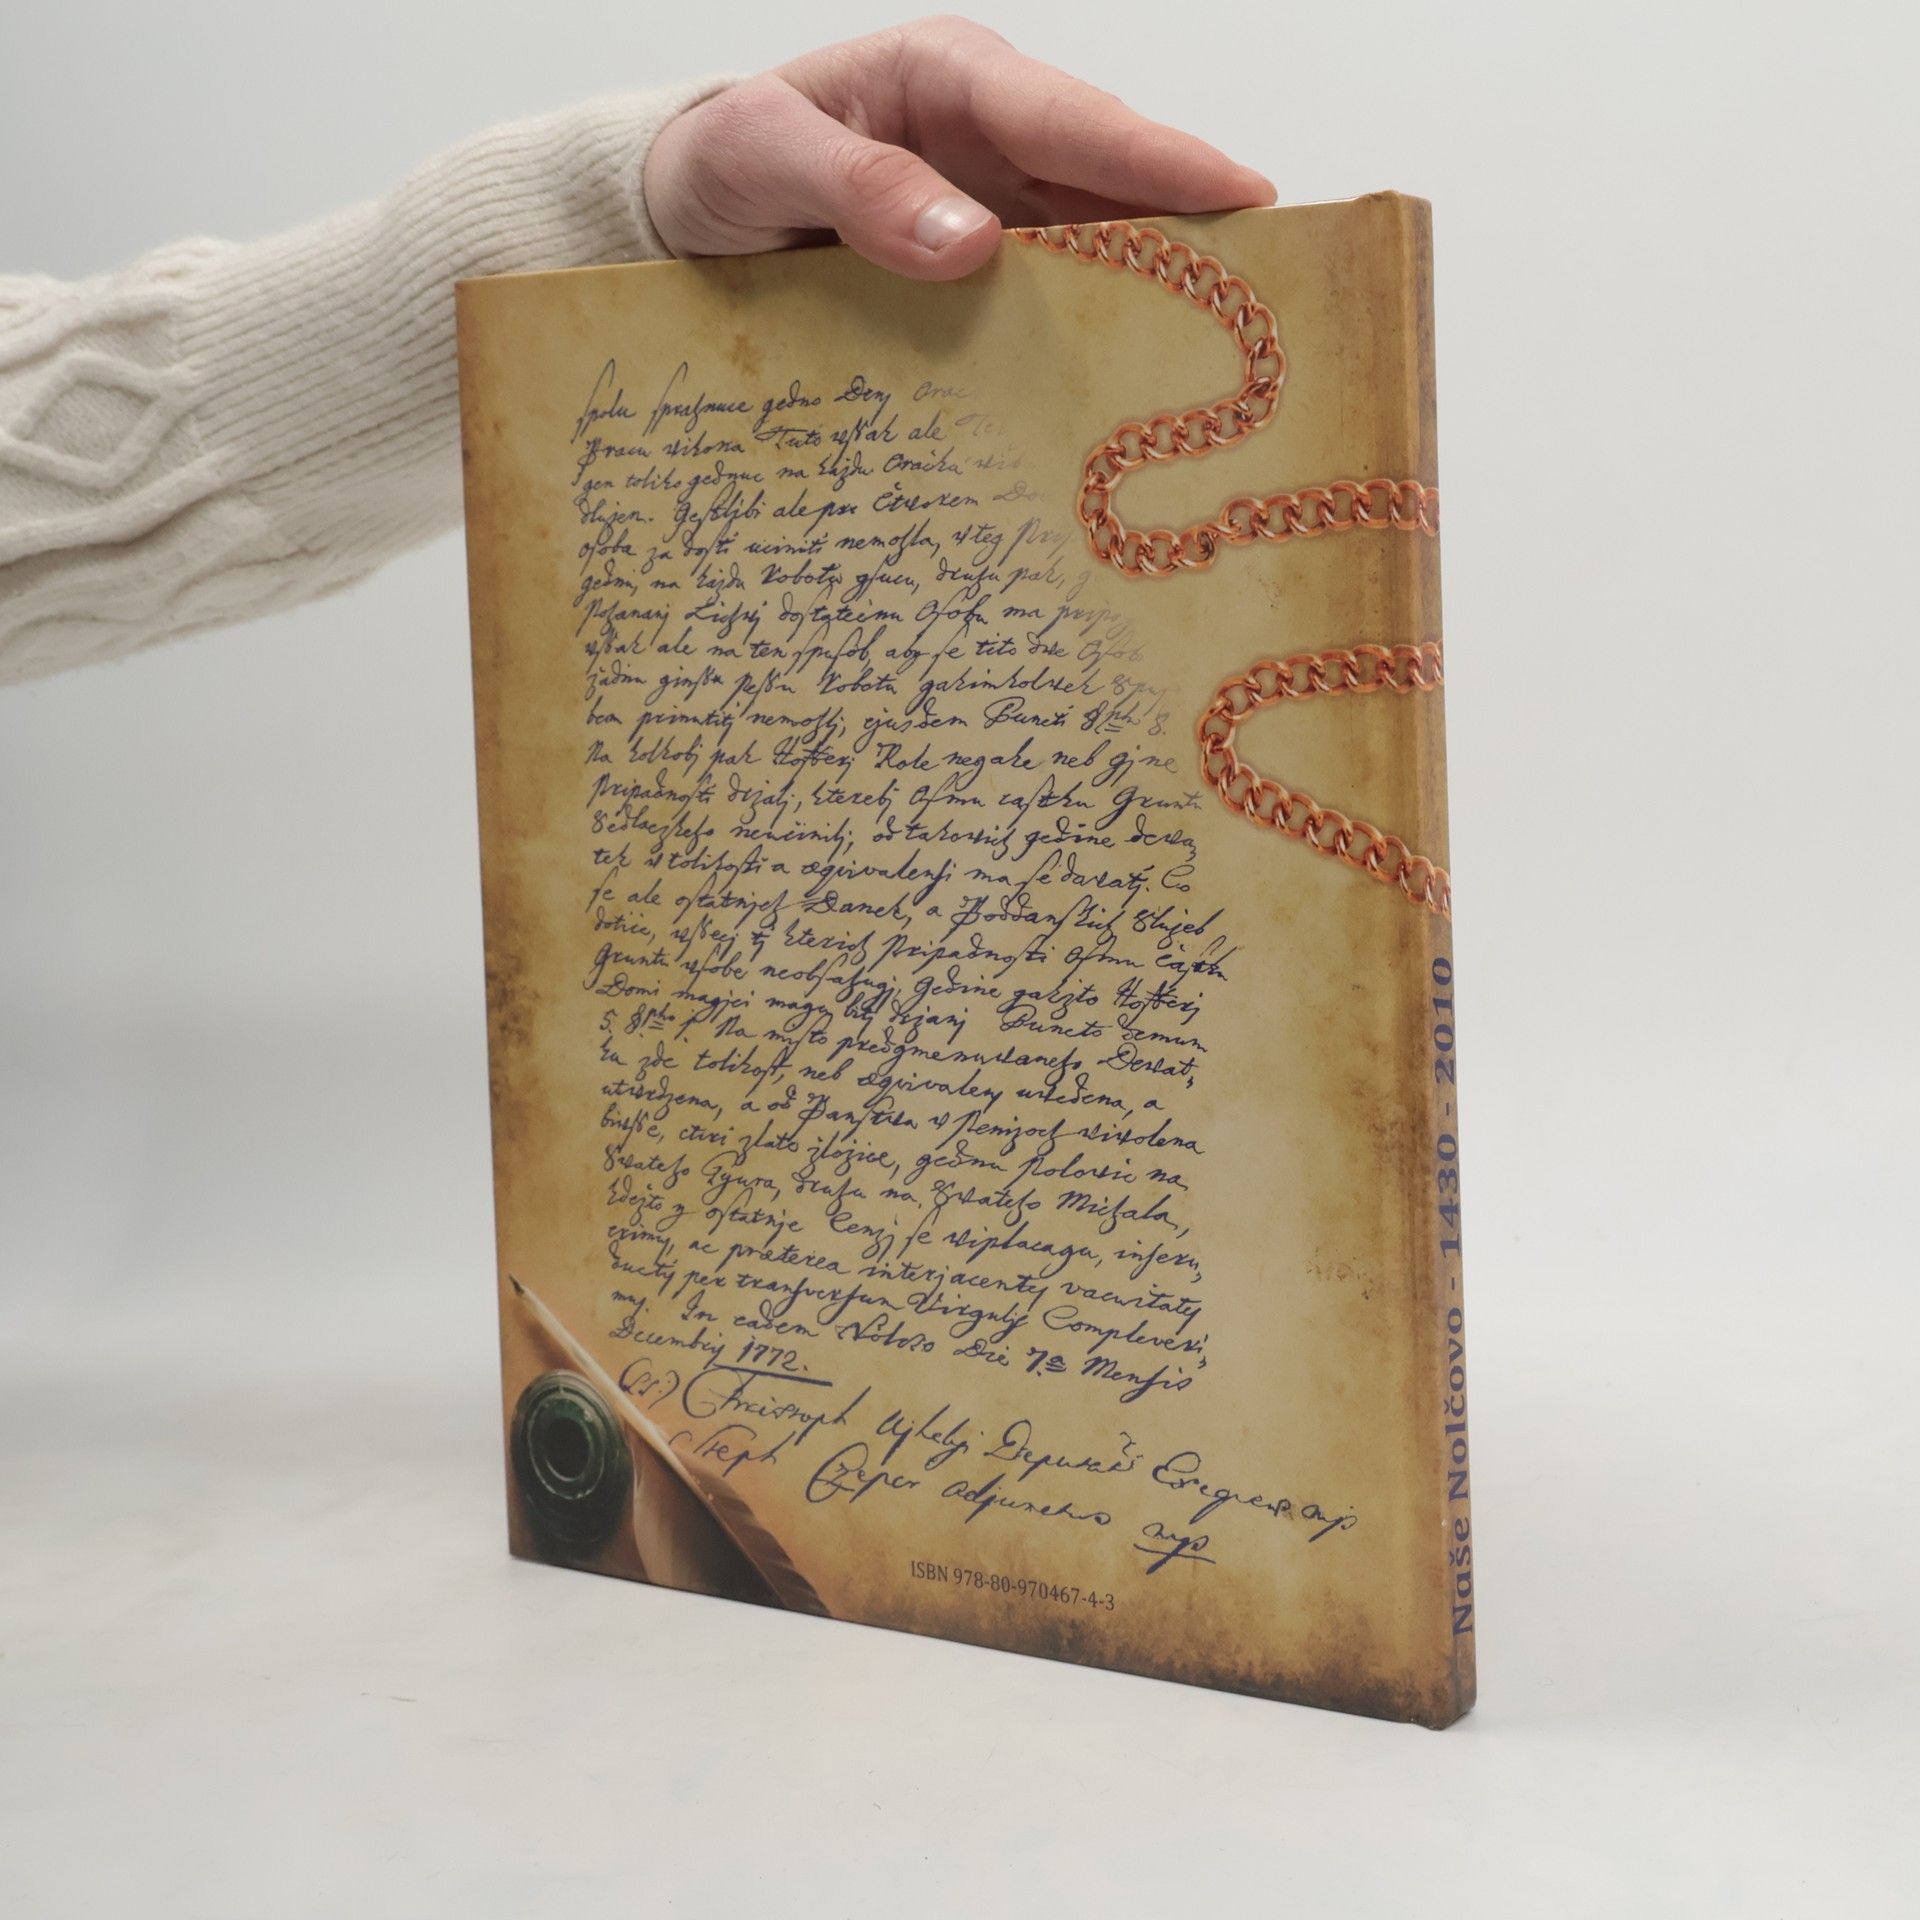 spolu spražnuce gedno Deny Orac
Pracu wikona Tuto wssak ale Te
gen toliko gednuc na každu Oračku wi
dlugen. Gestlibi ale pre Čtwrtem Do
osoba za dosti uciniti nemohla, w teg Prip
gednu, na každu Robotu gsucu, druhu pak, g
Pohanani Lichwj dostatečnu Osobu ma pripo
wssak ale na ten spusob, aby se tito dwe Osob
žadnu ginssu Pessu Robotu gakimkolwek Spus
bem prinutitj nemohlj, ejusdem Puncti 8pho 8.
Na kolkobj pak Hofferj Role negake neb gine
Pripadnosti držalj, kterebj Osmu častku Gruntu
Sedlackeho neučinilj, od takowich gedine dewa
tek w tolikosti a æqvivalensi ma se dawatj. Co
se ale ostatnjch Danek, a Poddanskich Služeb
dotiče, wssecj tj kterich Pripadnosti Osmu Častku
Gruntu w sobe neobsahugj, Gedine gakžto Hofferj
Domi magjci magu bitj držanj Puncto demum
5. 8pho j. Na misto predgmenuwaneho Dewat-
ku zde tolikost, neb æqvivalens uwedena, a
utwrdzena, a od Panstwa w Penizoch wiwolena
biwsse, ctiri zlato zložice, gednu Polowic na
Swateho Gyura, druhu na Swateho Michala,
kdežto y ostatnje Cenzj se wiplacagu, inseru-
erimus, ac præterea interjacentes vacuitates
ductis per transversum Virgulis Compleveri-
mus. In eadem Nolcso Die 7a Mensis
Decembris 1772.
(LS:) Christoph Ujhelyi Deputati Coregens mp
Steph Czeper Adjunctus mp
ISBN 978-80-970467-4-3
Naše Nolčovo - 1430 - 2010